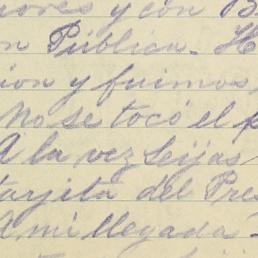 ores y con B
n Pública. H
ion y fuimos
No se tocó el p
A la vez Seijas
tarjeta del Pre
A mi llegada